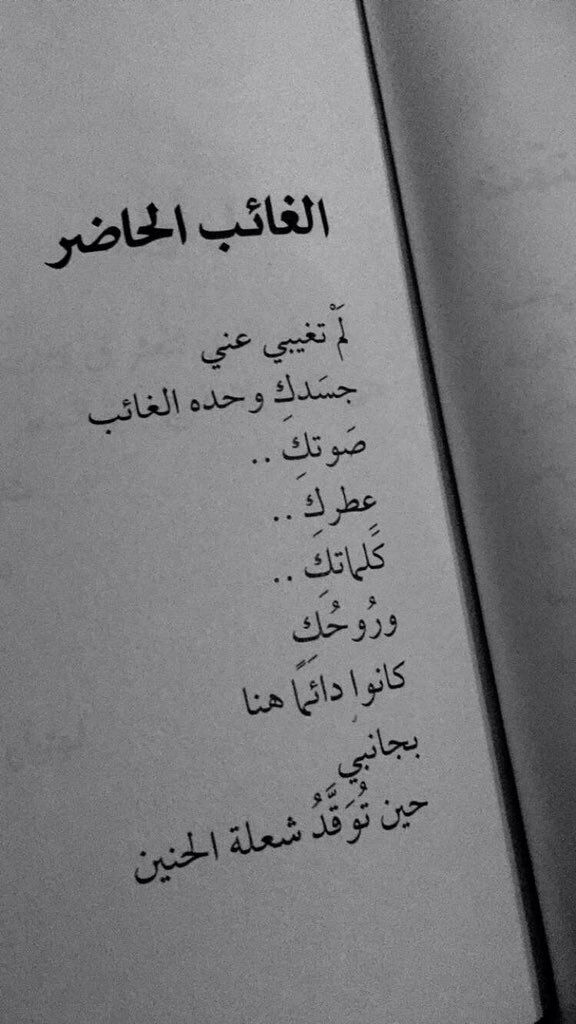 الغائب الحاضر
لَمْ تغيبي عني
جسَدكِ وحده الغائب
صَوتكِ ..
عِطركِ ..
كَلماتكِ ..
ورُوحُكِ
كانوا دائمًا هنا
بجانبي
حين تُوَقَّدُ شعلة الحنين